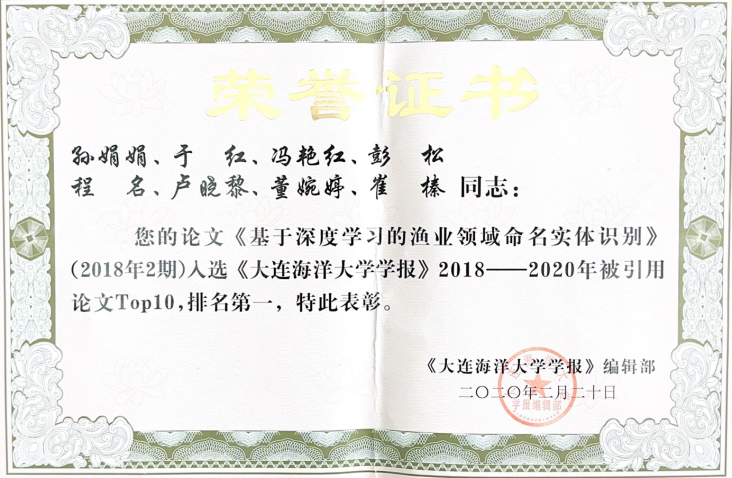 荣誉证书
孙娟娟、于 红、冯艳红、彭 松
程 名、卢晓黎、董婉婷、崔 榛 同志：
您的论文《基于深度学习的渔业领域命名实体识别》
(2018年2期)入选《大连海洋大学学报》2018——2020年被引用
论文Top10，排名第一，特此表彰。
《大连海洋大学学报》编辑部
二〇二〇年二月二十日
学报编辑部